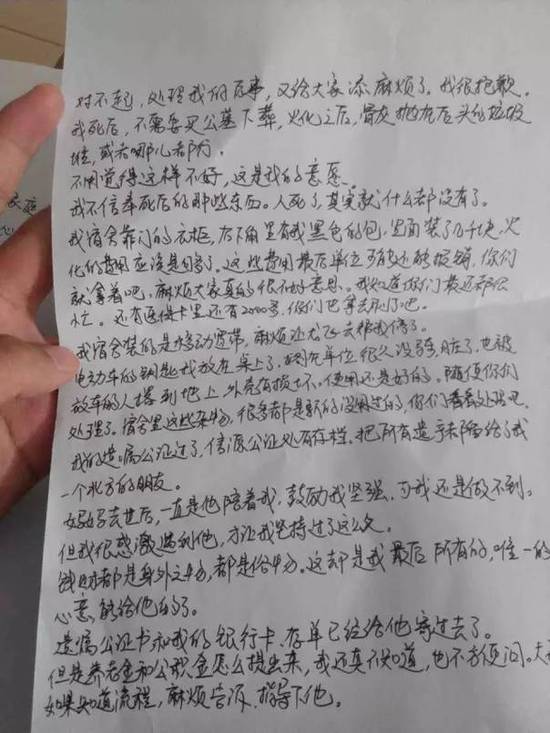 对不起，处理我的后事，又给大家添麻烦了。我很抱歉。
我死后，不需要买公墓下葬，火化之后，骨灰抛在后头的垃圾
堆，或者哪儿都行。
不用觉得这样不好，这是我的意愿。
我不信奉死后的那些东西。人死了，其实就什么都没有了。
我宿舍靠门的衣柜，左下角里有我黑色的包，里面装了几千块，火
化的费用应该是够了。这些费用最后单位还能报销，你们
就拿着吧，麻烦大家真的很不好意思。我知道你们最近都很
忙。还有医保卡里还有2000多，你们也拿去用了吧。
我宿舍装的是移动宽带，麻烦让龙飞去帮我停了。
电动车的钥匙我放在桌上了，两充单位很久没骑脏了，也被
放车的人摔到地上，外壳有损坏。使用还是好的。随便你们
处理了。宿舍里这些杂物，很多都是新的没用过的，你们看着处理吧。
我的遗嘱公证过了，信源公证处有存档。把所有遗产都留给了我
一个北方的朋友。
妈妈去世后，一直是他陪着我，鼓励我坚强，可我还是做不到。
但我很感激遇到他，才让我坚持过了这么久。
钱财都是身外之物，都是俗物。这却是我最后所有的，唯一的
心意，能给他的了。
遗嘱公证书和我的银行卡、存单已经给他寄过去了。
但是养老金和公积金怎么提出来，我还真不知道，也不方便问。大
如果知道流程，麻烦告诉、指导下他。